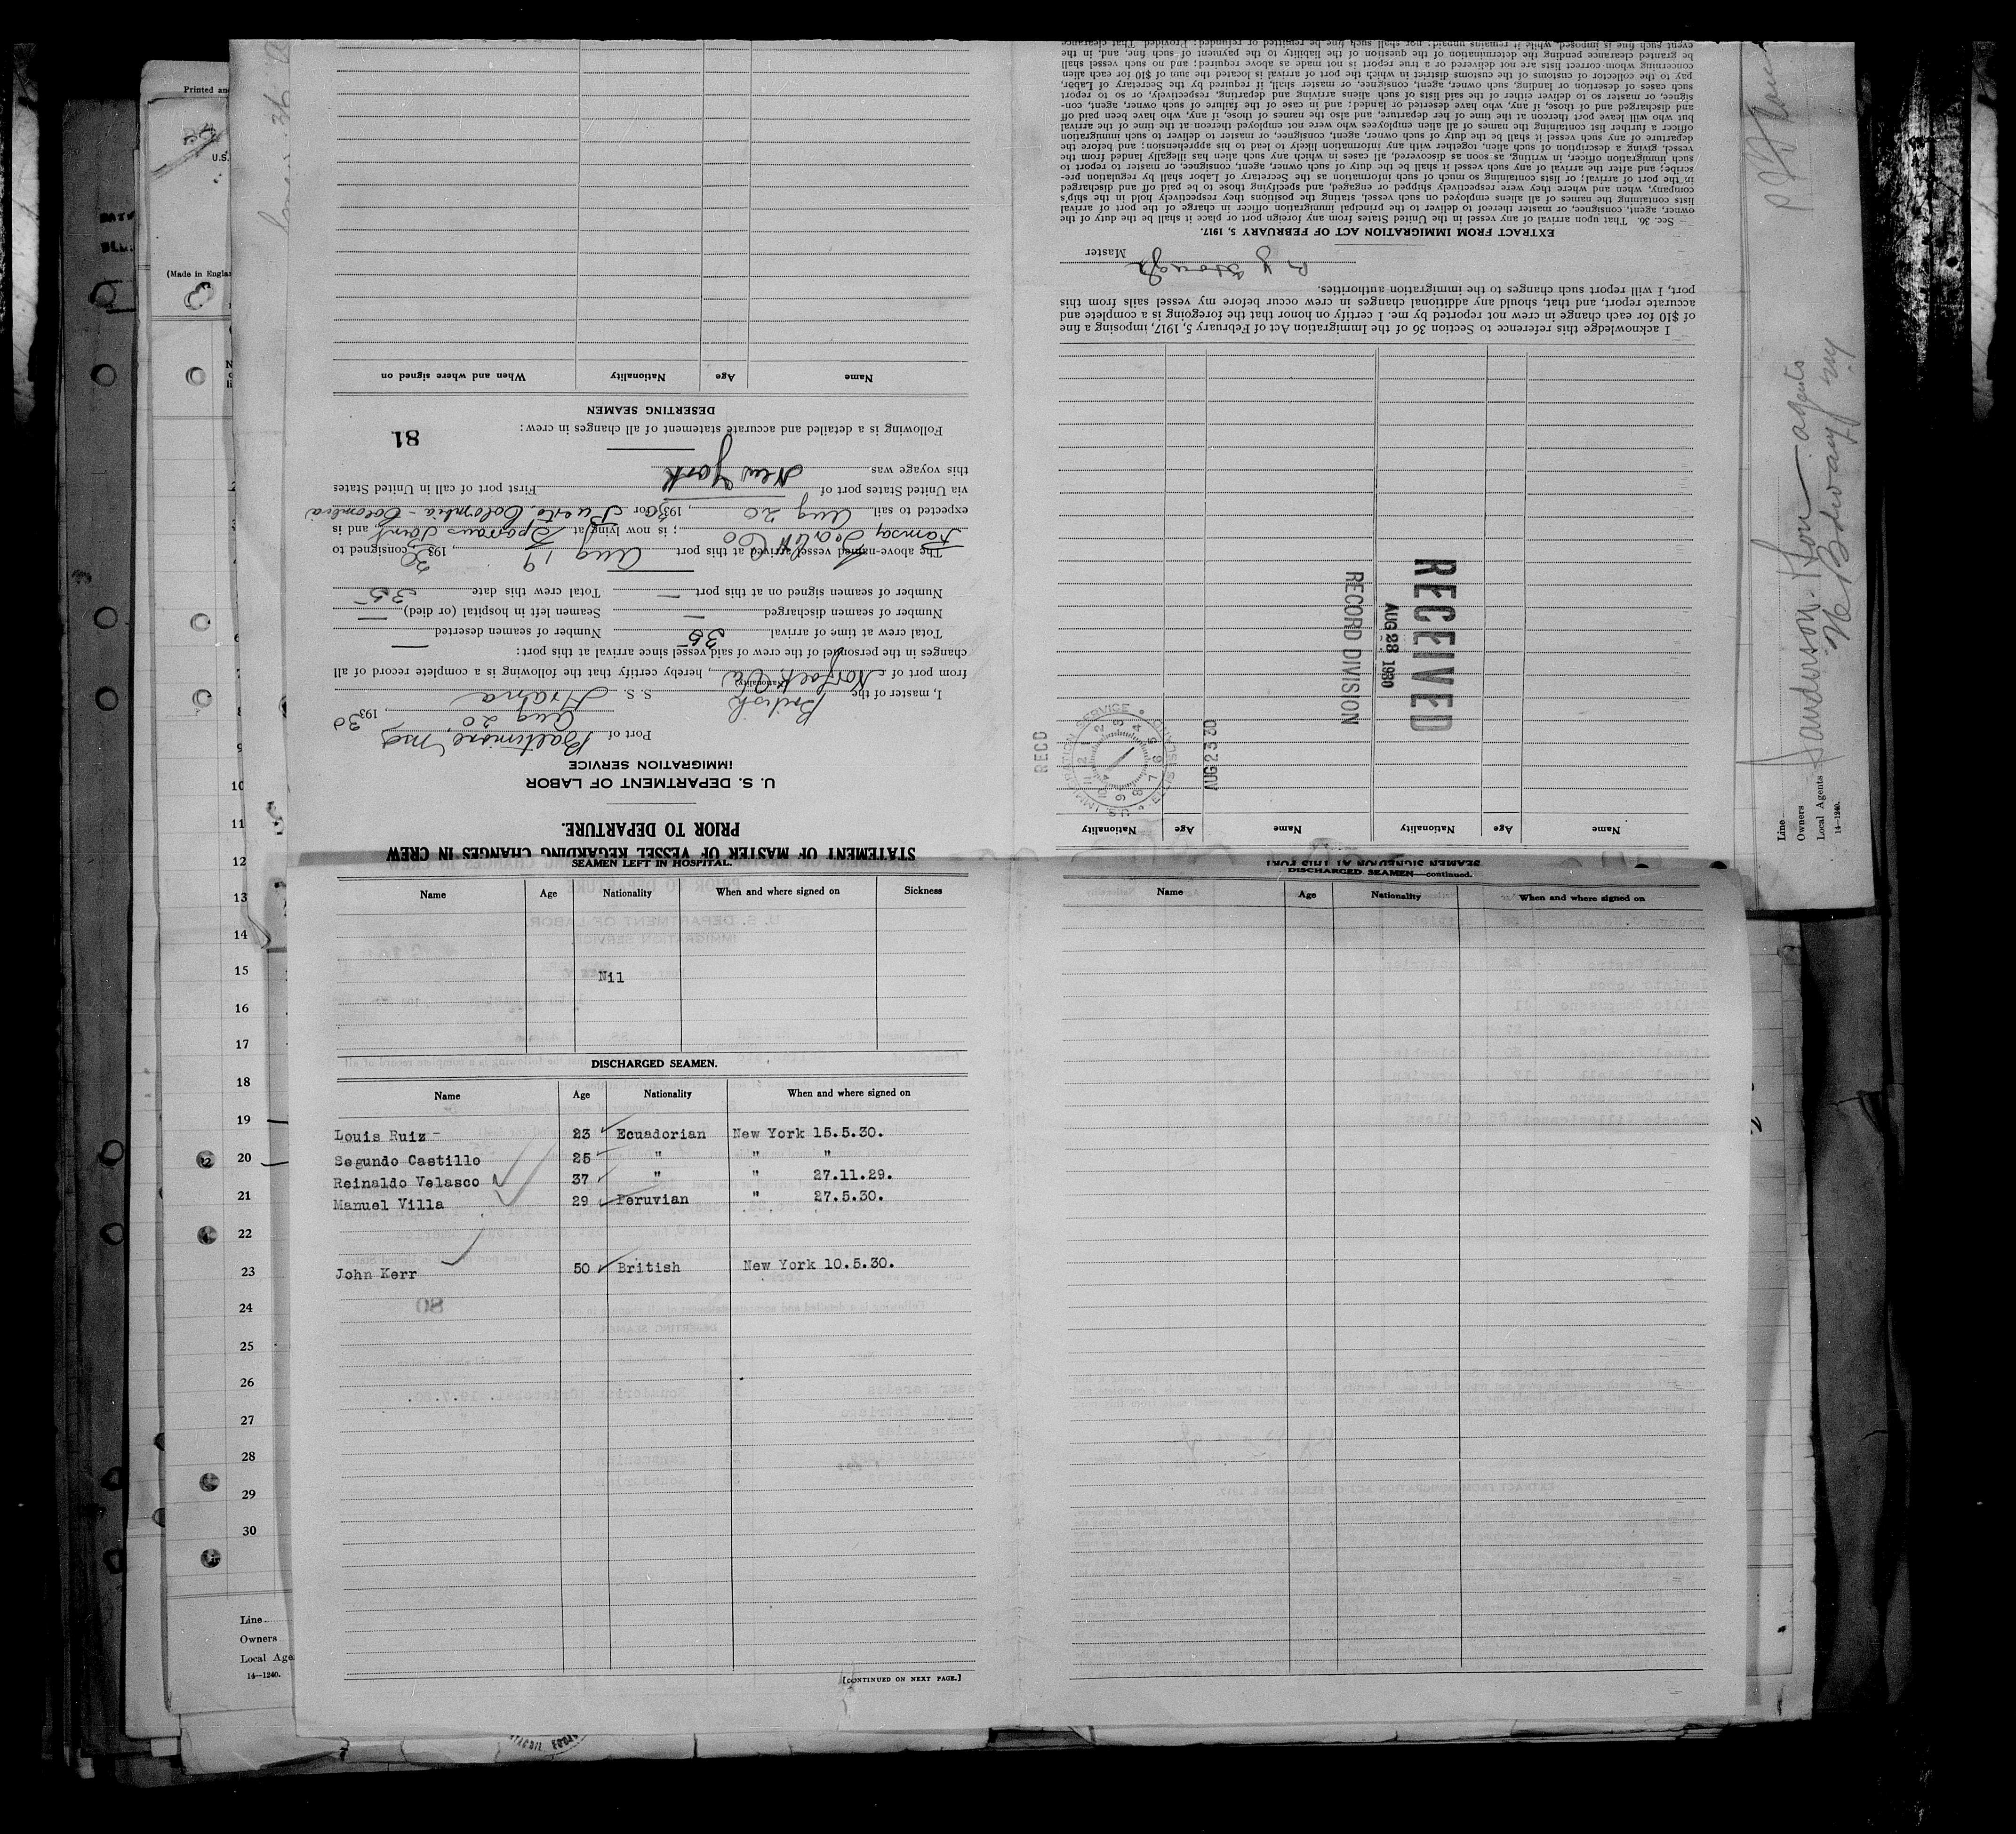 SEAMEN LEFT IN HOSPITAL.
Name Age Nationality When and where signed on Sickness
Nil
DISCHARGED SEAMEN.
Name Age Nationality When and where signed on
Louis Ruiz 23 Ecuadorian New York 15.5.30.
Segundo Castillo 25 " " "
Reinaldo Velasco 37 " " 27.11.29.
Manuel Villa 29 Peruvian " 27.5.30.
John Kerr 50 British New York 10.5.30.
[CONTINUED ON NEXT PAGE.]
DISCHARGED SEAMEN—continued.
Name Age Nationality When and where signed on
STATEMENT OF MASTER OF VESSEL REGARDING CHANGES IN CREW
PRIOR TO DEPARTURE.
U. S. DEPARTMENT OF LABOR
IMMIGRATION SERVICE
Port of Baltimore, Md
Aug 20, 1930
I, master of the British S. S.
(Nationality)
from port of Norfolk Va, hereby certify that the following is a complete record of all
changes in the personnel of the crew of said vessel since arrival at this port:
Total crew at time of arrival 35 Number of seamen deserted —
Number of seamen discharged — Seamen left in hospital (or died) —
Number of seamen signed on at this port — Total crew this date 35
The above-named vessel arrived at this port Aug 19, 1930, consigned to
Ramsay Scarlett Co; is now lying at Sparrows Point, and is
expected to sail Aug 20, 1930 for Puerto Colombia - Colombia
via United States port of First port of call in United States
this voyage was New York
Following is a detailed and accurate statement of all changes in crew:
81
DESERTING SEAMEN
Name Age Nationality When and where signed on
SEAMEN SIGNED ON AT THIS PORT
Name Age Nationality Name Age Nationality
RECD
U.S. IMMIGRATION SERVICE
AUG 23 30
RECEIVED
AUG 28 1930
RECORD DIVISION
I acknowledge this reference to Section 36 of the Immigration Act of February 5, 1917, imposing a fine
of $10 for each change in crew not reported by me. I certify on honor that the foregoing is a complete and
accurate report, and that, should any additional changes in crew occur before my vessel sails from this
port, I will report such changes to the immigration authorities.
Master
EXTRACT FROM IMMIGRATION ACT OF FEBRUARY 5, 1917.
Sec. 36. That upon arrival of any vessel in the United States from any foreign port or place it shall be the duty of the
owner, agent, consignee, or master thereof to deliver to the principal immigration officer in charge of the port of arrival
lists containing the names of all aliens employed on such vessel, stating the positions they respectively hold in the ship's
company, when and where they were respectively shipped or engaged, and specifying those to be paid off and discharged
in the port of arrival; or lists containing so much of such information as the Secretary of Labor shall by regulation pre-
scribe; and after the arrival of any such vessel it shall be the duty of such owner, agent, consignee, or master to report to
such immigration officer, in writing, as soon as discovered, all cases in which any such alien has illegally landed from the
vessel, giving a description of such alien, together with any information likely to lead to his apprehension; and before the
departure of any such vessel it shall be the duty of such owner, agent, consignee, or master to deliver to such immigration
officer a further list containing the names of all alien employees who were not employed thereon at the time of the arrival
but who will leave port thereon at the time of her departure, and also the names of those, if any, who have been paid off
and discharged and of those, if any, who have deserted or landed; and in case of the failure of such owner, agent, con-
signee, or master so to deliver either of the said lists of such aliens arriving and departing, respectively, or so to report
such cases of desertion or landing, such owner, agent, consignee, or master shall, if required by the Secretary of Labor,
pay to the collector of customs of the customs district in which the port of arrival is located the sum of $10 for each alien
concerning whom correct lists are not delivered or a true report is not made as above required; and no such vessel shall
be granted clearance pending the determination of the question of the liability to the payment of such fine, and, in the
event such fine is imposed, while it remains unpaid; nor shall such fine be remitted or refunded: Provided, That clearance
Line
Owners
Local Agents Sanderson & Son - agents
Broadway NY
14—1240.
Printed and
U.S.
(Made in England
10
11
12
13
14
15
16
17
18
19
20
21
22
23
24
25
26
27
28
29
30
Line
Owners
Local Age
14—1240.